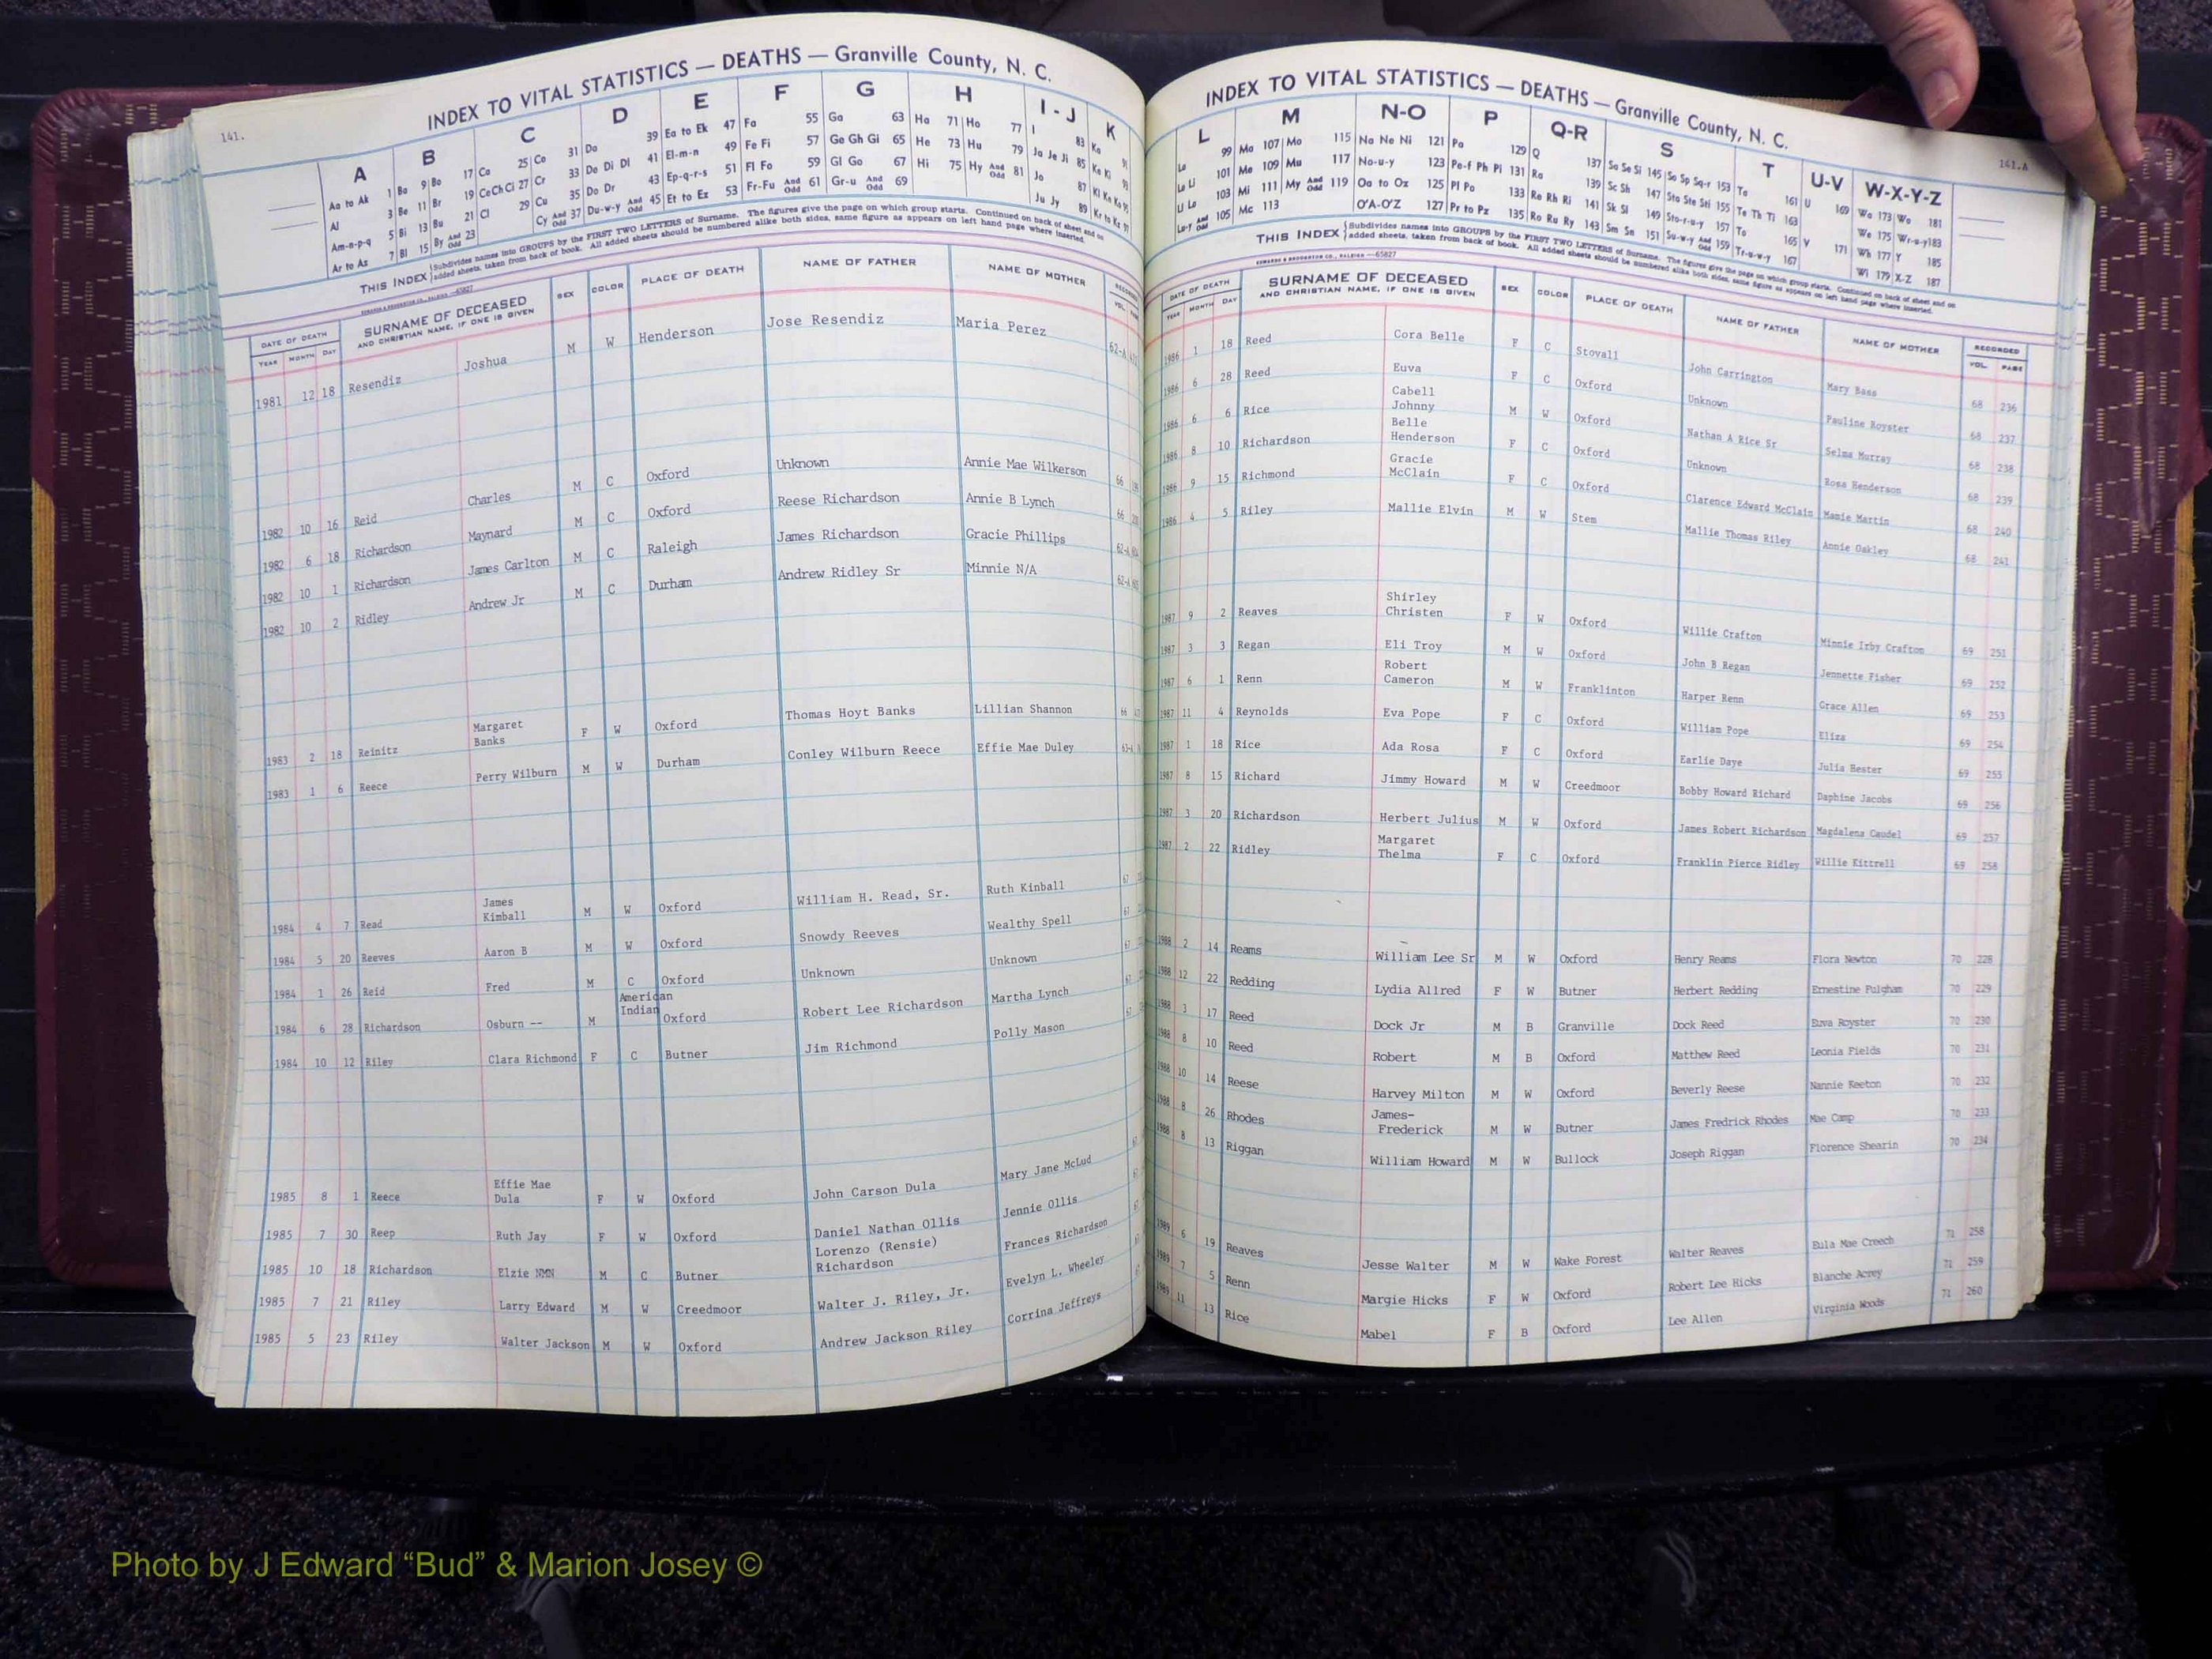 141.
INDEX TO VITAL STATISTICS — DEATHS — Granville County, N. C.
A B C D E F G H I - J K
Aa to Ak 1 Ba 9 Bo 17 Ca 25 Co 31 Da 39 Ea to Ek 47 Fa 55 Ga 63 Ha 71 Ho 77 I 83 Ka
Al 3 Be 11 Br 19 Ce Ch Ci 27 Cr 33 De Di Dl 41 El-m-n 49 Fe Fi 57 Ge Gh Gi 65 He 73 Hu 79 Ja Je Ji 85 Ke Ki
Am-n-p-q 5 Bi 13 Bu 21 Cl 29 Cu 35 Do Dr 43 Ep-q-r-s 51 Fl Fo 59 Gl Go 67 Hi 75 Hy And Odd 81 Jo 87
Ar to Az 7 Bl 15 By And Odd 23 Cy And Odd 37 Du-w-y And Odd 45 Et to Ez 53 Fr-Fu And Odd 61 Gr-u And Odd 69 Ju Jy 89
THIS INDEX Subdivides names into GROUPS by the FIRST TWO LETTERS of Surname. The figures give the page on which group starts. Continued on back of sheet and on
added sheets, taken from back of book. All added sheets should be numbered alike both sides, same figure as appears on left hand page where inserted.
DATE OF DEATH SURNAME OF DECEASED SEX COLOR PLACE OF DEATH NAME OF FATHER NAME OF MOTHER
YEAR MONTH DAY AND CHRISTIAN NAME, IF ONE IS GIVEN VOL.
1981 12 18 Resendiz Joshua M W Henderson Jose Resendiz Maria Perez 62-A
1982 10 16 Reid Charles M C Oxford Unknown Annie Mae Wilkerson 66
1982 6 18 Richardson Maynard M C Oxford Reese Richardson Annie B Lynch 66
1982 10 1 Richardson James Carlton M C Raleigh James Richardson Gracie Phillips 62-A
1982 10 2 Ridley Andrew Jr M C Durham Andrew Ridley Sr Minnie N/A 62-A
1983 2 18 Reinitz Margaret Banks F W Oxford Thomas Hoyt Banks Lillian Shannon 66
1983 1 6 Reece Perry Wilburn M W Durham Conley Wilburn Reece Effie Mae Duley
1984 4 7 Read James Kimball M W Oxford William H. Read, Sr. Ruth Kinball 67
1984 5 20 Reeves Aaron B M W Oxford Snowdy Reeves Wealthy Spell 67
1984 1 26 Reid Fred M C Oxford Unknown Unknown 67
1984 6 28 Richardson Osburn -- M American Indian Oxford Robert Lee Richardson Martha Lynch 67
1984 10 12 Riley Clara Richmond F C Butner Jim Richmond Polly Mason 67
1985 8 1 Reece Effie Mae Dula F W Oxford John Carson Dula Mary Jane McLud 67
1985 7 30 Reep Ruth Jay F W Oxford Daniel Nathan Ollis Jennie Ollis 67
1985 10 18 Richardson Elzie NMN M C Butner Lorenzo (Rensie) Richardson Frances Richardson 67
1985 7 21 Riley Larry Edward M W Creedmoor Walter J. Riley, Jr. Evelyn L. Wheeley 67
1985 5 23 Riley Walter Jackson M W Oxford Andrew Jackson Riley Corrina Jeffreys 67
INDEX TO VITAL STATISTICS — DEATHS — Granville County, N. C.
141.A
L M N-O P Q-R S T U-V W-X-Y-Z
La 99 Ma 107 Mo 115 Na Ne Ni 121 Pa 129 Q 137 Sa Se Si 145 So Sp Sq-r 153 Ta 161 U 169 Wa 173 Wo 181
Le Li 101 Me 109 Mu 117 No-u-y 123 Pe-f Ph Pi 131 Ra 139 Sc Sh 147 Sta Ste Sti 155 Te Th Ti 163 We 175 Wr-u-y 183
Ll Lo 103 Mi 111 My And Odd 119 Oa to Oz 125 Pl Po 133 Re Rh Ri 141 Sk Sl 149 Sto-r-u-y 157 To 165 V 171 Wh 177 Y 185
Lu-y And Odd 105 Mc 113 O'A-O'Z 127 Pr to Pz 135 Ro Ru Ry 143 Sm Sn 151 Su-w-y And Odd 159 Tr-u-w-y 167 Wi 179 X-Z 187
THIS INDEX Subdivides names into GROUPS by the FIRST TWO LETTERS of Surname. The figures give the page on which group starts. Continued on back of sheet and on
added sheets, taken from back of book. All added sheets should be numbered alike both sides, same figure as appears on left hand page where inserted.
DATE OF DEATH SURNAME OF DECEASED SEX COLOR PLACE OF DEATH NAME OF FATHER NAME OF MOTHER RECORDED
YEAR MONTH DAY AND CHRISTIAN NAME, IF ONE IS GIVEN VOL. PAGE
1986 1 18 Reed Cora Belle F C Stovall John Carrington Mary Bass 68 236
1986 6 28 Reed Euva F C Oxford Unknown Pauline Royster 68 237
1986 6 6 Rice Cabell Johnny M W Oxford Nathan A Rice Sr Selma Murray 68 238
1986 8 10 Richardson Belle Henderson F C Oxford Unknown Rosa Henderson 68 239
1986 9 15 Richmond Gracie McClain F C Oxford Clarence Edward McClain Mamie Martin 68 240
1986 4 5 Riley Mallie Elvin M W Stem Mallie Thomas Riley Annie Oakley 68 241
1987 9 2 Reaves Shirley Christen F W Oxford Willie Crafton Minnie Irby Crafton 69 251
1987 3 3 Regan Eli Troy M W Oxford John B Regan Jennette Fisher 69 252
1987 6 1 Renn Robert Cameron M W Franklinton Harper Renn Grace Allen 69 253
1987 11 4 Reynolds Eva Pope F C Oxford William Pope Eliza 69 254
1987 1 18 Rice Ada Rosa F C Oxford Earlie Daye Julia Hester 69 255
1987 8 15 Richard Jimmy Howard M W Creedmoor Bobby Howard Richard Daphine Jacobs 69 256
1987 3 20 Richardson Herbert Julius M W Oxford James Robert Richardson Magdalena Caudel 69 257
1987 2 22 Ridley Margaret Thelma F C Oxford Franklin Pierce Ridley Willie Kittrell 69 258
1988 2 14 Reams William Lee Sr M W Oxford Henry Reams Flora Newton 70 228
1988 12 22 Redding Lydia Allred F W Butner Herbert Redding Ernestine Fulgham 70 229
1988 3 17 Reed Dock Jr M B Granville Dock Reed Euva Royster 70 230
1988 8 10 Reed Robert M B Oxford Matthew Reed Leonia Fields 70 231
1988 10 14 Reese Harvey Milton M W Oxford Beverly Reese Nannie Keeton 70 232
1988 8 26 Rhodes James-Frederick M W Butner James Fredrick Rhodes Mae Camp 70 233
1988 8 13 Riggan William Howard M W Bullock Joseph Riggan Florence Shearin 70 234
1989 6 19 Reaves Jesse Walter M W Wake Forest Walter Reaves Eula Mae Creech 71 258
1989 7 5 Renn Margie Hicks F W Oxford Robert Lee Hicks Blanche Acrey 71 259
1989 11 13 Rice Mabel F B Oxford Lee Allen Virginia Woods 71 260
Photo by J Edward “Bud” & Marion Josey ©